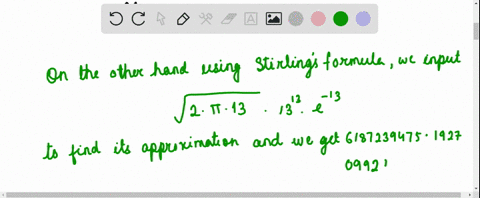 On the other hand using Stirling's formula, we input
√2·π·13 · 13¹³ · e⁻¹³
to find its approximation and we get 6187239475·1927
0992